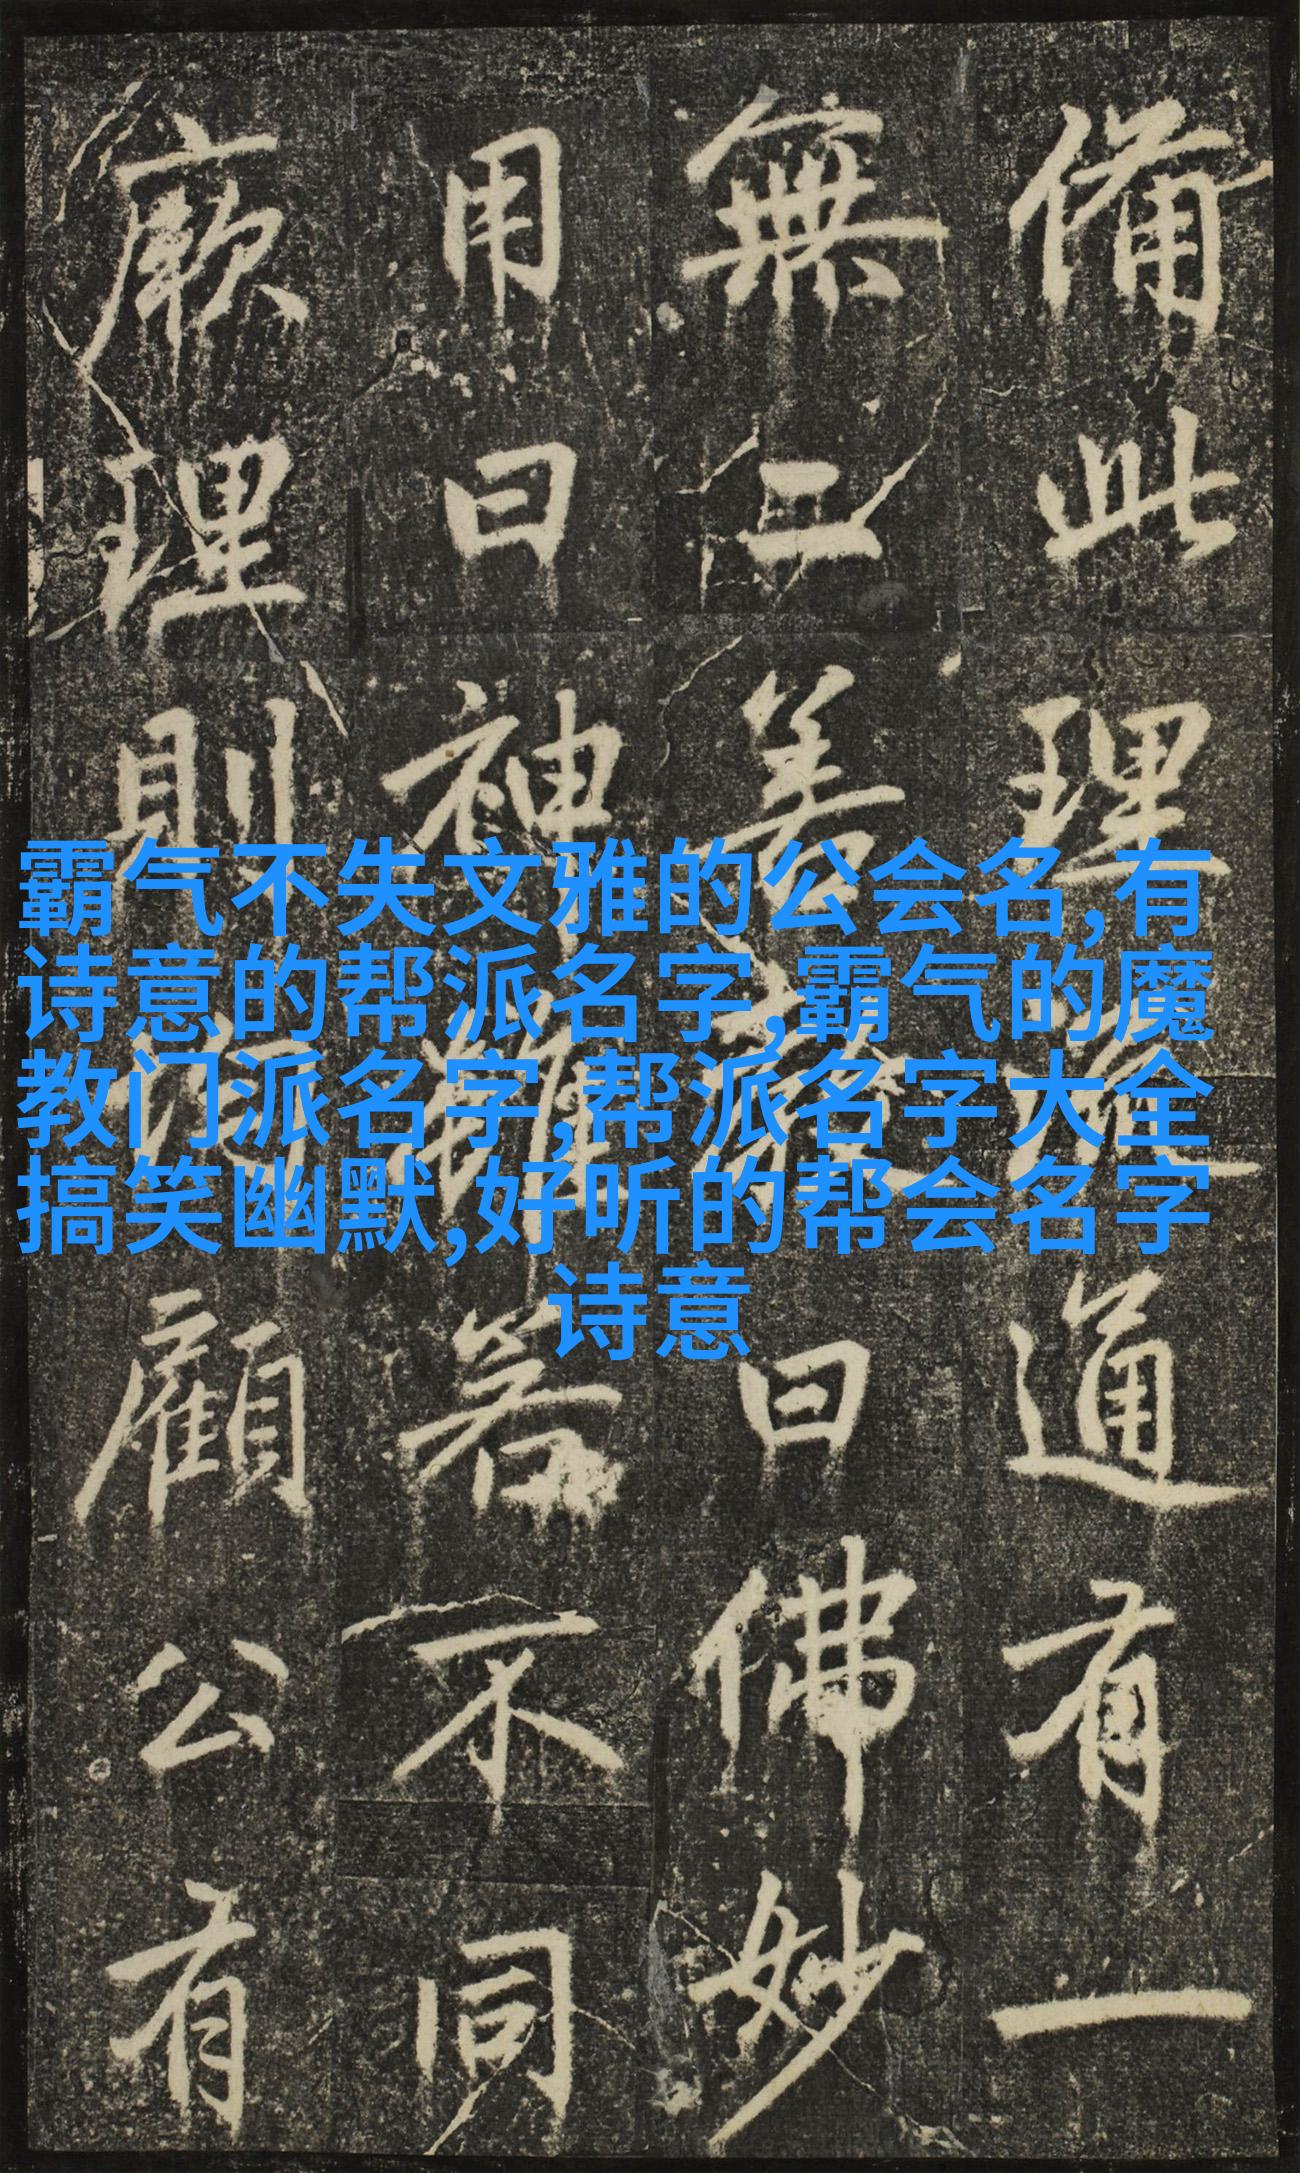 霸气不失文雅的公会名,有
诗意的帮派名字,霸气的魔
教门派名字,帮派名字大全
搞笑幽默,好听的帮会名字
诗意
備此理通有一
無善曰佛妙
用曰神若不同
厥理則顧公有